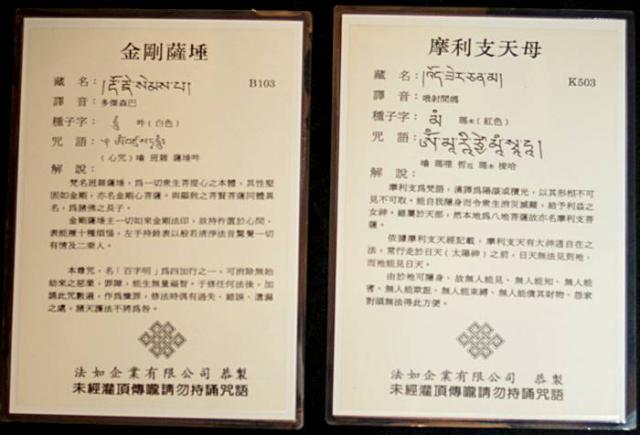 金剛薩埵
藏 名：།རྡོ་རྗེ་སེམས་པ། B103
譯 音：多傑森巴
種子字：ཧཱུྃ 吽（白色）
咒 語：
（心咒）嗡 班雜 薩埵吽
解 說：
梵名班雜薩埵，為一切衆生菩提心之本體，其性堅
固如金剛，亦名金剛心菩薩。與顯教之普賢菩薩同體異
名，為諸佛之長子。
金剛薩埵主一切如來金剛法印，故持杵置於心間，
表能摧十種煩惱，左手持鈴表以般若清淨法音驚覺一切
有情及二乘人。
本尊咒，名「百字明」為四加行之一，可消除無始
劫來之惡業，罪障，能生無量福智。于修任何法後，加
誦此咒數遍，作為懺罪，修法時偶有過失、錯誤、遺漏
之處，諸天護法不將為咎。
法如企業有限公司 恭製
未經灌頂傳嚨請勿持誦咒語
摩利支天母
藏 名：།འོད་ཟེར་ཅན་མ། K503
譯 音：哦射間媽
種子字：མཾ 瑪木（紅色）
咒 語：
嗡 瑪哩 瑪木 梭哈
解 說：
摩利支為梵語，漢譯為陽燄或積光，以其形相不可
見不可取。能自我隱身而令衆生消災滅難，給予利益之
女神。雖屬於天部，然本地為八地菩薩故亦名摩利支菩
薩。
依據摩利支天經記載，摩利支天有大神通自在之
法，常行走於日天（太陽神）之前，日天無法見到祂，
而祂能見日天。
由於祂可隱身、故無人能見、無人能知、無人能
害、無人能欺誑、無人能束縛、無人能債其財物、怨家
對頭無法得此方便。
法如企業有限公司 恭製
未經灌頂傳嚨請勿持誦咒語